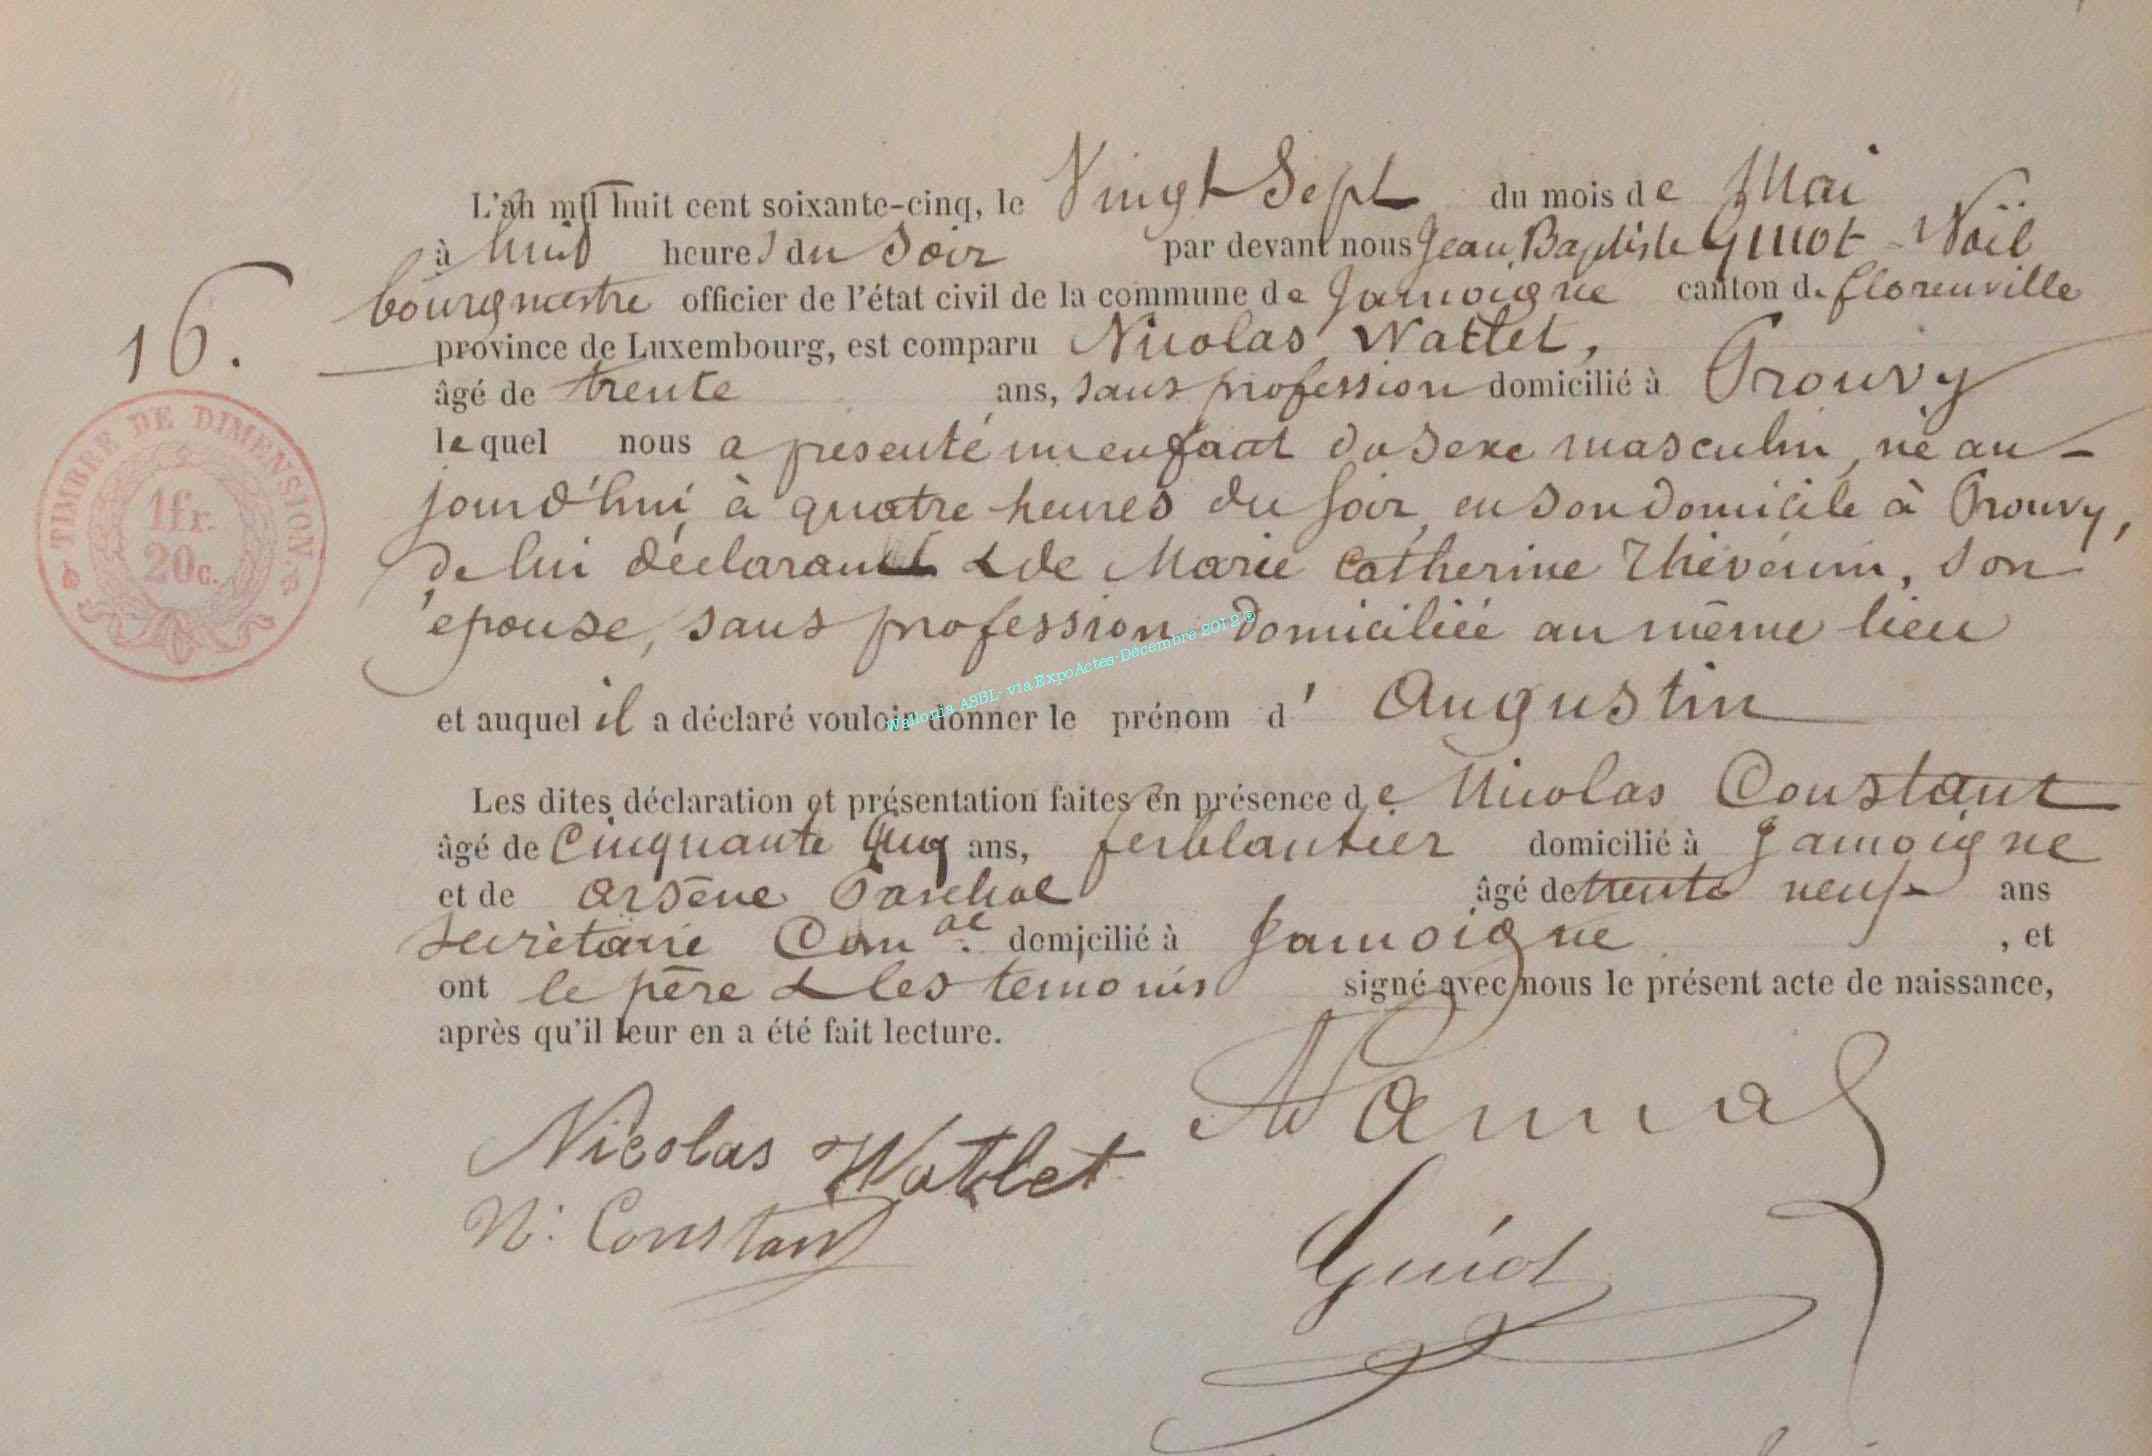 L'an mil huit cent soixante-cinq, le Vingt Sept du mois de Mai
à huit heures du soir par devant nous Jean Baptiste Guiot Noël
bourgmestre officier de l'état civil de la commune de Jamoigne canton de florenville
province de Luxembourg, est comparu Nicolas Watlet,
16.
âgé de trente ans, sans profession domicilié à Prouvy
lequel nous a presenté un enfant du sexe masculin, né au-
jourd'hui à quatre heures du soir, en son domicile à Prouvy,
de lui déclarant & de Marie Catherine Thévenin, son
épouse, sans profession domiciliée au même lieu
et auquel il a déclaré vouloir donner le prénom d' Augustin
Les dites déclaration et présentation faites en présence de Nicolas Constant
âgé de Cinquante Cinq ans, ferblantier domicilié à Jamoigne
et de Arsène âgé de trente neuf ans
secrètaire Com.al domicilié à Jamoigne , et
ont le père & les temoins signé avec nous le présent acte de naissance,
après qu'il leur en a été fait lecture.
Nicolas Watlet
N. Constant
Guiot
TIMBRE DE DIMENSION.
1fr.
20c.
Wallonia ASBL- via ExpoActes-Décembre 2012 ®